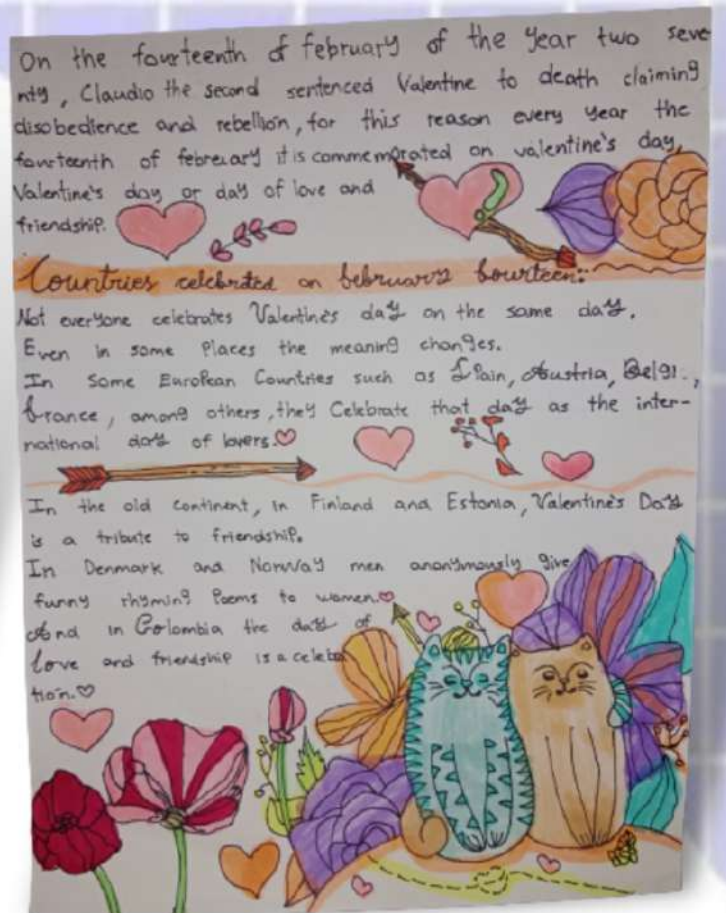 On the fourteenth of february of the year two seve
nty, Claudio the second sentenced Valentine to death claiming
disobedience and rebellion, for this reason every year the
fourteenth of february it is commemorated on valentine's day,
Valentine's day or day of love and
friendship.
Countries celebrated on february fourteen:
Not everyone celebrates Valentine's day on the same day.
Even in some Places the meaning changes.
In Some European Countries such as Spain, Austria, Belgi.,
france, among others, they Celebrate that day as the inter-
national day of lovers.
In the old continent, in Finland and Estonia, Valentine's Day
is a tribute to friendship.
In Denmark and Norway men anonymously give
funny rhyming Poems to women.
And in Colombia the day of
love and friendship is a celebra
tion.